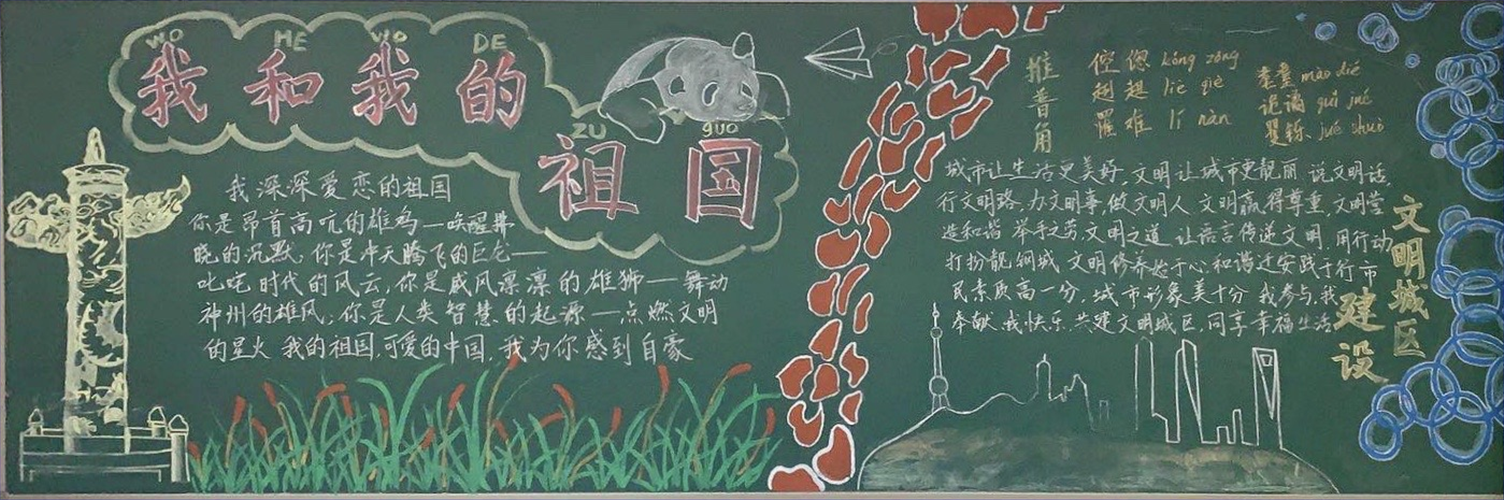 WO HE WO DE
我和我的
ZU GUO
祖国
我深深爱恋的祖国
你是昂首高吭的雄鸡—唤醒拂
晓的沉默，你是冲天腾飞的巨龙—
叱咤时代的风云，你是威风凛凛的雄狮—舞动
神州的雄风，你是人类智慧的起源—点燃文明
的星火 我的祖国，可爱的中国，我为你感到自豪
推普角
倥偬 kǒng zǒng
趔趄 liè qiè
罹难 lí nàn
耄耋 mào dié
诡谲 guǐ jué
矍铄 jué shuò
城市让生活更美好，文明让城市更靓丽 说文明话，
行文明路，办文明事，做文明人 文明赢得尊重，文明营
造和谐 举手之劳，文明之道 让语言传递文明，用行动
打扮靓钢城 文明修养始于心 和谐迁安践于行 市
民素质高一分，城市形象美十分 我参与，我
奉献，我快乐，共建文明城区，同享幸福生活
文明城区
建设